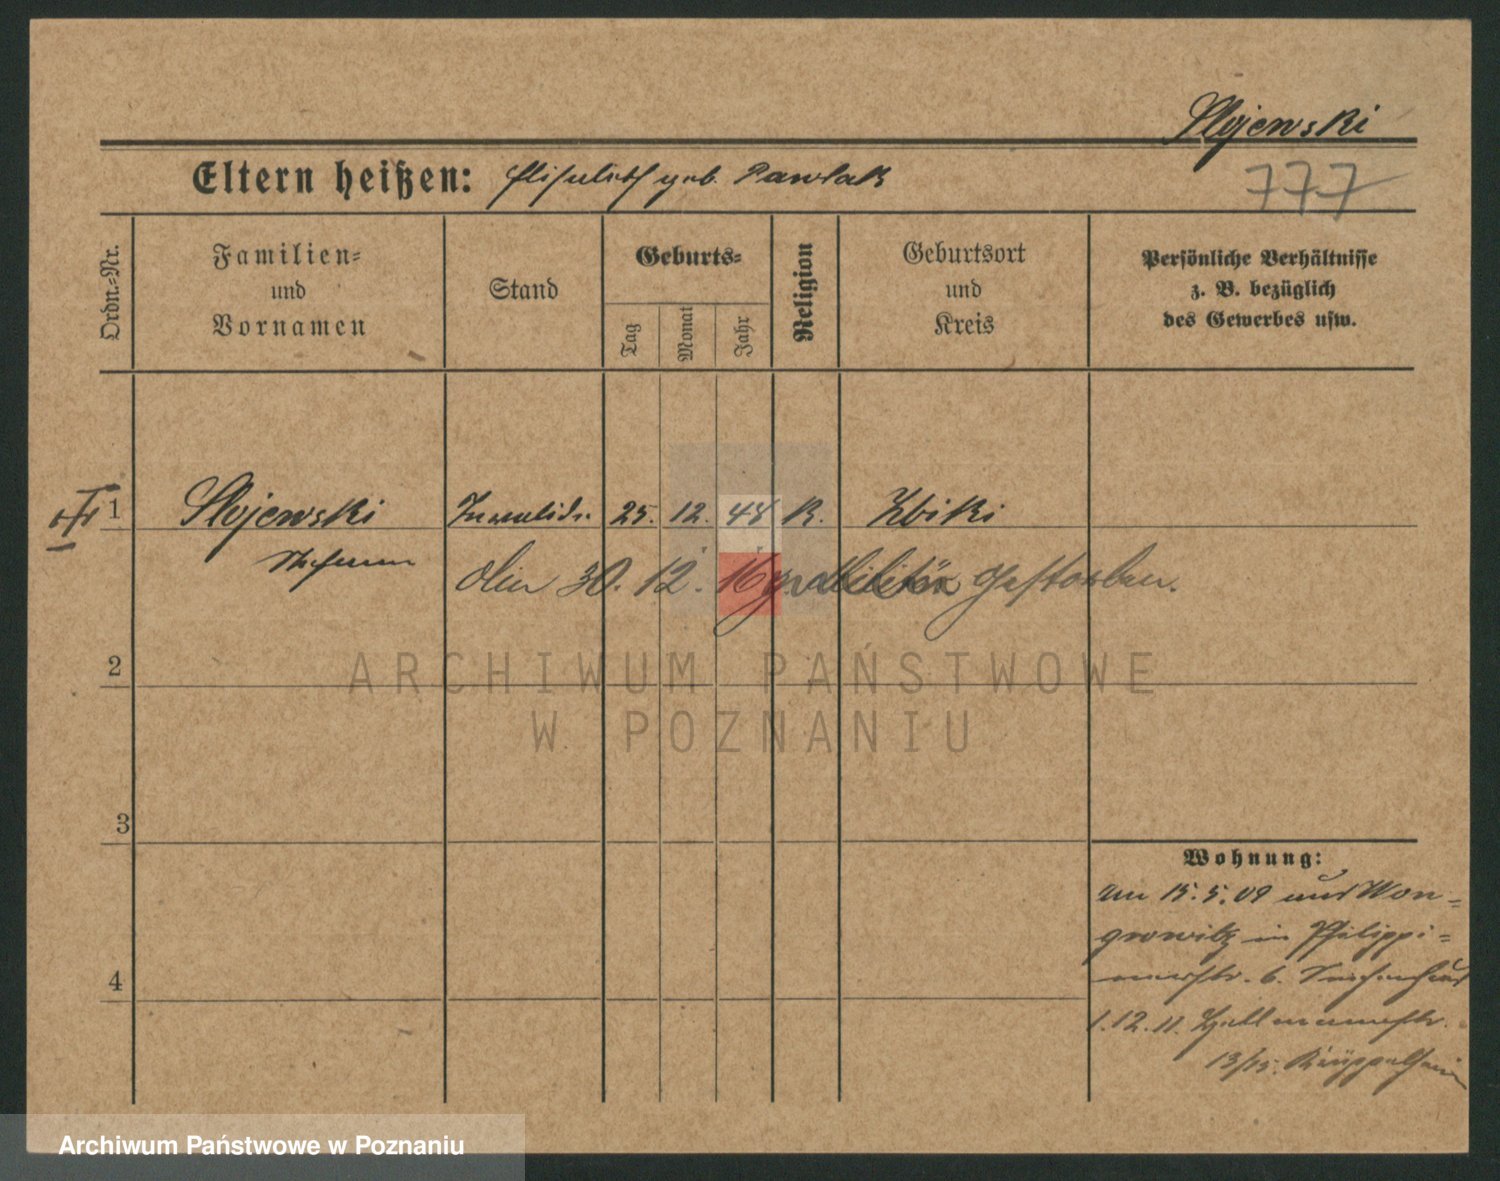 Slojewski
Eltern heißen: Elisabeth geb. Pawlak
777
Ordn.-Nr.
Familien-
und
Vornamen
Stand
Geburts-
Tag
Monat
Jahr
Religion
Geburtsort
und
Kreis
Persönliche Verhältnisse
z. B. bezüglich
des Gewerbes usw.
1 Slojewski Invalide. 25. 12. 48 K. Zbiki
den 30. 12. 16 gestorben.
2
3
4
Wohnung:
am 15.5.09 aus Won=
growitz in Philippi=
nerstr. 6. Siechenhaus
1.12.11.
13/15. Krüppelheim
ARCHIWUM PAŃSTWOWE
W POZNANIU
Archiwum Państwowe w Poznaniu